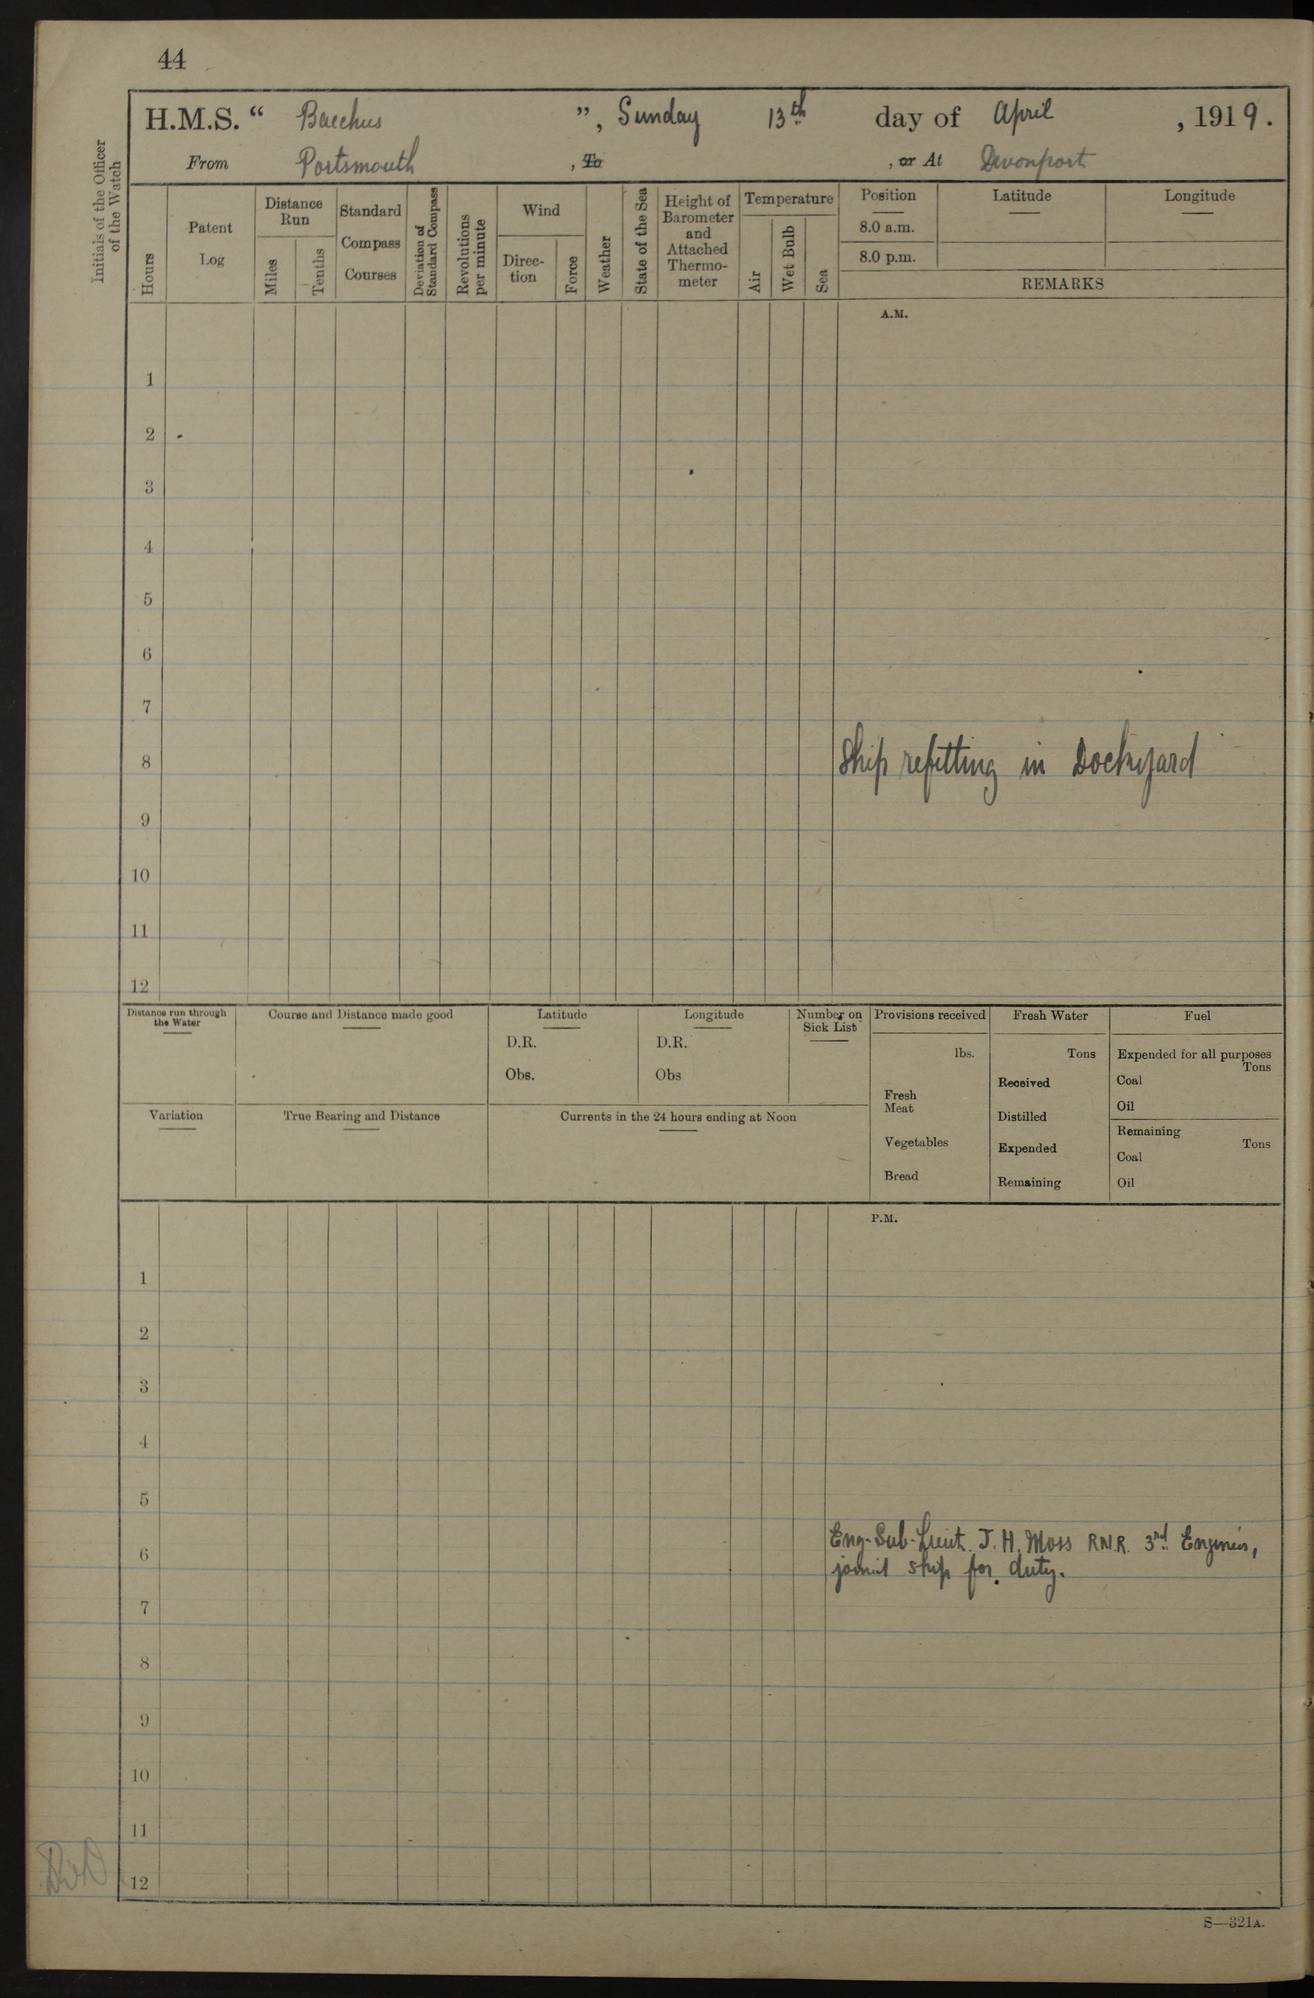 44
H.M.S. “ Bacchus ”, Sunday 13th day of April , 1919.
From Portsmouth , To , or At Devonport
Initials of the Officer of the Watch
Hours
Patent Log
Distance Run
Miles
Tenths
Standard Compass Courses
Deviation of Standard Compass
Revolutions per minute
Wind
Direction
Force
Weather
State of the Sea
Height of Barometer and Attached Thermometer
Temperature
Air
Wet Bulb
Sea
Position
8.0 a.m.
8.0 p.m.
Latitude
Longitude
REMARKS
A.M.
1
2
3
4
5
6
7
8 Ship refitting in Dockyard
9
10
11
12
Distance run through the Water
Course and Distance made good
Latitude
D.R.
Obs.
Longitude
D.R.
Obs
Number on Sick List
Provisions received
lbs.
Fresh Meat
Vegetables
Bread
Fresh Water
Tons
Received
Distilled
Expended
Remaining
Fuel
Expended for all purposes
Tons
Coal
Oil
Remaining
Tons
Coal
Oil
Variation
True Bearing and Distance
Currents in the 24 hours ending at Noon
P.M.
1
2
3
4
5
6 Eng-Sub-Lieut. J. H. Moss R.N.R. 3rd Engineer,
joined ship for duty.
7
8
9
10
11
12
S—321A.